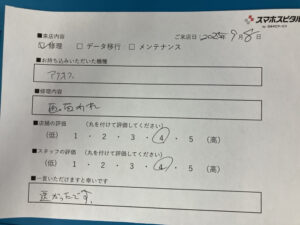 スマホスピタル
■来店内容
ご来店日 2025年 9月 8日
☑修理 □ データ移行 □ メンテナンス
■お持ち込みいただいた機種
■修理内容
画面われ
■店舗の評価 (丸を付けて評価してください)
(低) 1 ・ 2 ・ 3 ・ 4 ・ 5 (高)
■スタッフの評価 (丸を付けて評価してください)
(低) 1 ・ 2 ・ 3 ・ 4 ・ 5 (高)
■一言いただけますと幸いです
速かったです。